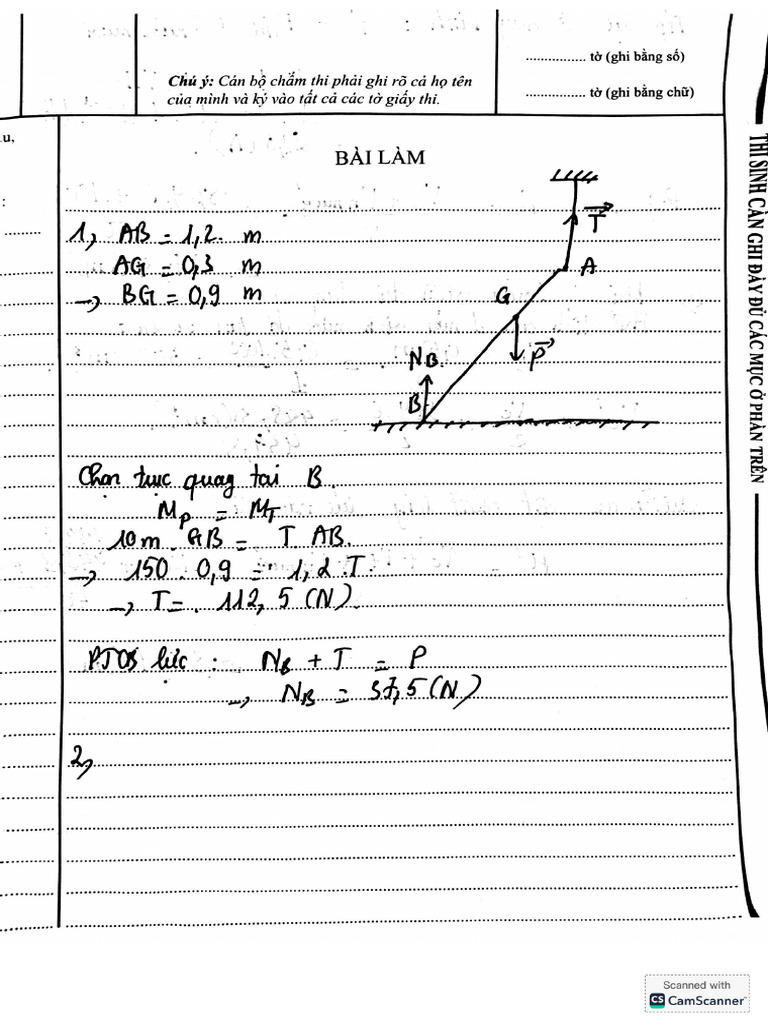 .................. tờ (ghi bằng số)
Chú ý: Cán bộ chấm thi phải ghi rõ cả họ tên
của mình và ký vào tất cả các tờ giấy thi.
.................. tờ (ghi bằng chữ)
u,
:
BÀI LÀM
THI SINH CẦN GHI ĐẦY ĐỦ CÁC MỤC Ở PHẦN TRÊN
1, AB = 1,2 m
AG = 0,3 m
→ BG = 0,9 m
T
A
G
P
NB
B
Chọn trục quay tại B.
MP = MT
10m . GB = T AB.
→ 150 . 0,9 = 1,2 . T
→ T = 112,5 (N)
PTCB lực : NB + T = P
→ NB = 37,5 (N)
2,
Scanned with
CS CamScanner